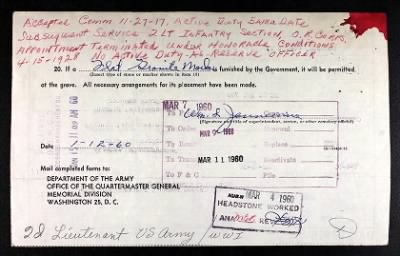 Accepted Comm 11-27-17, Active Duty Same Date
Subsequent Service 2 Lt Infantry Section O.R. Corps.
Appointment Terminated Under Honorable Conditions
4-15-1928 No Active Duty As Reserve Officer
20. If a Flat Granite Marker furnished by the Government, it will be permitted
(Insert type of stone or marker shown in item 13)
at the grave. All necessary arrangements for its placement have been made.
MAR 7 1960
(Signature of superintendent, sexton, or other cemetery official)
To Order
Renewal
Replace
Date 1-12-60
To Trans MAR 11 1960 Reactivate
To F & C File
Mail completed forms to:
DEPARTMENT OF THE ARMY
OFFICE OF THE QUARTERMASTER GENERAL
MEMORIAL DIVISION
WASHINGTON 25, D. C.
MAR 4 1960
HEADSTONE WORKED
2d Lieutenant US Army WWI